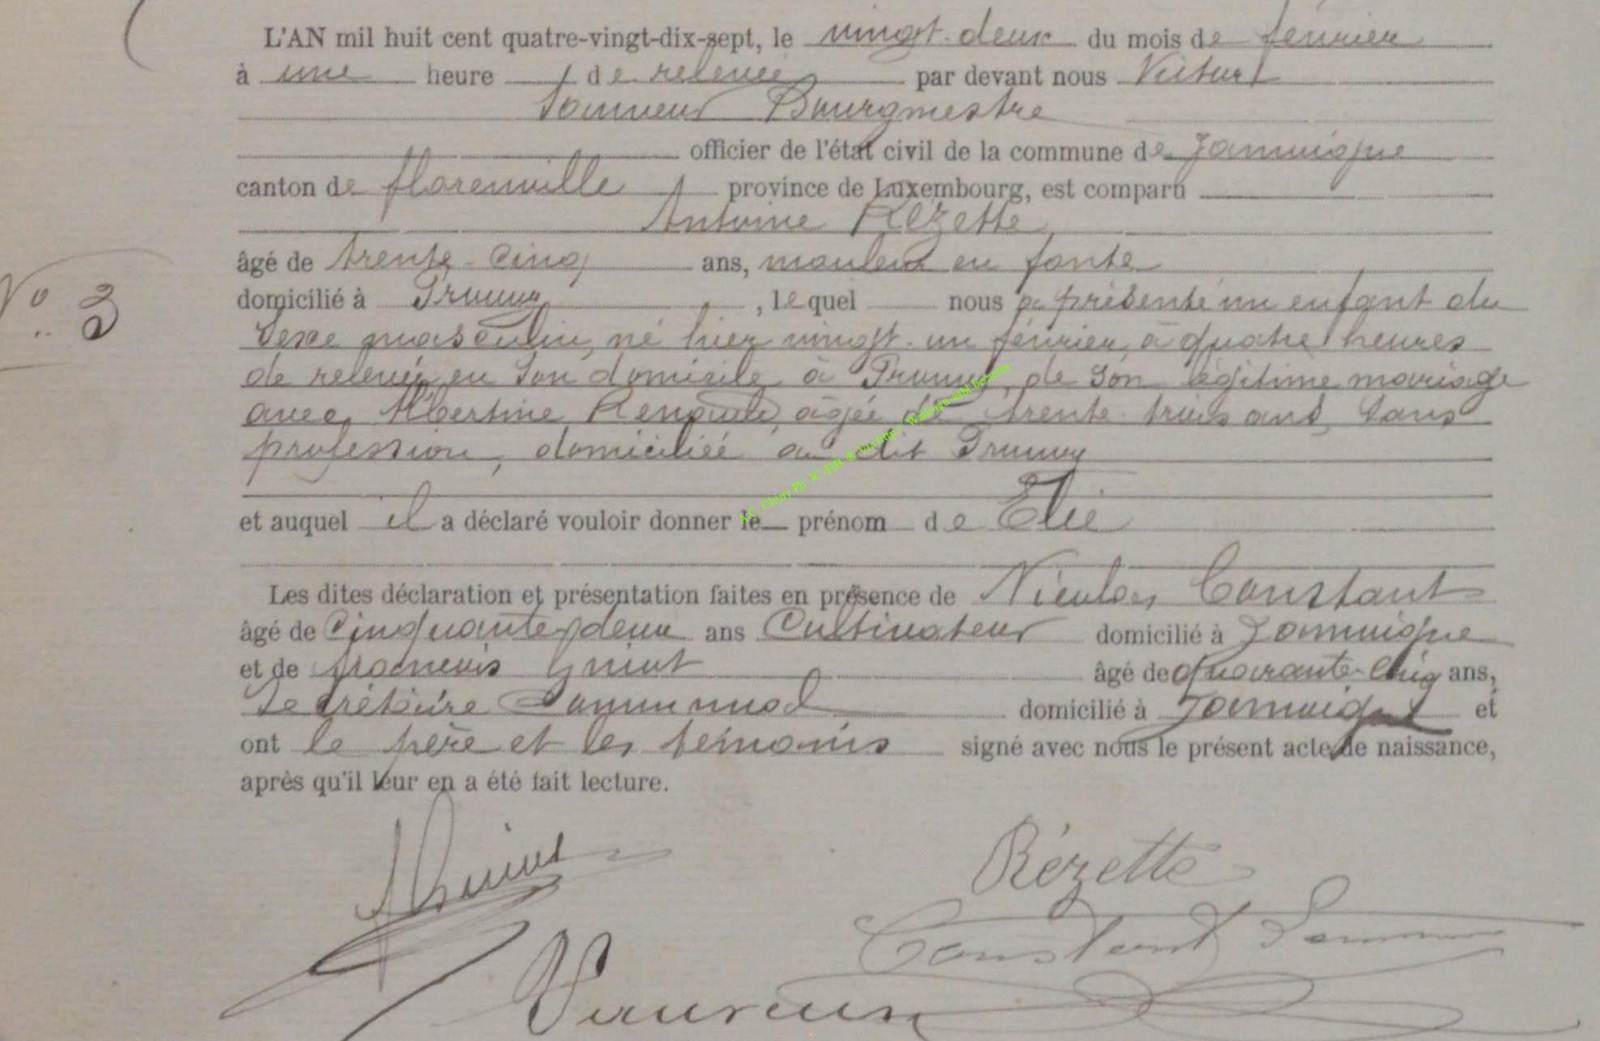 L'AN mil huit cent quatre-vingt-dix-sept, le vingt-deux du mois de février
à une heure de relevée par devant nous
Bourgmestre
officier de l'état civil de la commune de Jamoigne
canton de florenville province de Luxembourg, est comparu
Antoine Rézette
âgé de trente-cinq ans, mouleur en fonte
domicilié à Prouvy, lequel nous a présenté un enfant du
sexe masculin, né hier vingt-un février, à quatre heures
de relevée, en son domicile à Prouvy, de son légitime mariage
avec Albertine âgée de trente-trois ans, sans
profession, domiciliée au dit Prouvy
et auquel il a déclaré vouloir donner le prénom de Elie
Les dites déclaration et présentation faites en présence de Nicolas Constant
âgé de Cinquante-deux ans Cultivateur domicilié à Jamoigne
N° 3
et de françois âgé de quarante-cinq ans,
Secrétaire Communal domicilié à Jamoigne et
ont le père et les témoins signé avec nous le présent acte de naissance,
après qu'il leur en a été fait lecture.
Rézette
Constant